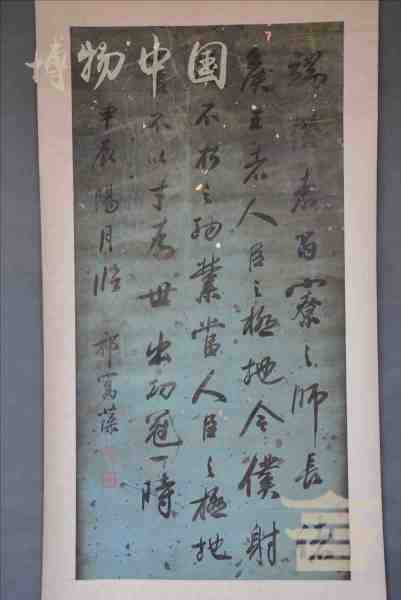 博物中国
端揆者百寮之師長諸
侯王者人臣之極地今僕射
不朽之功業當人臣之極地
不以才為世出功冠一時
甲辰陽月臨 祁寯藻